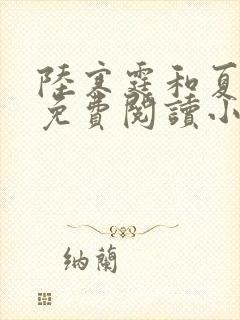 陸寒霆和夏
免費閱讀小
納蘭